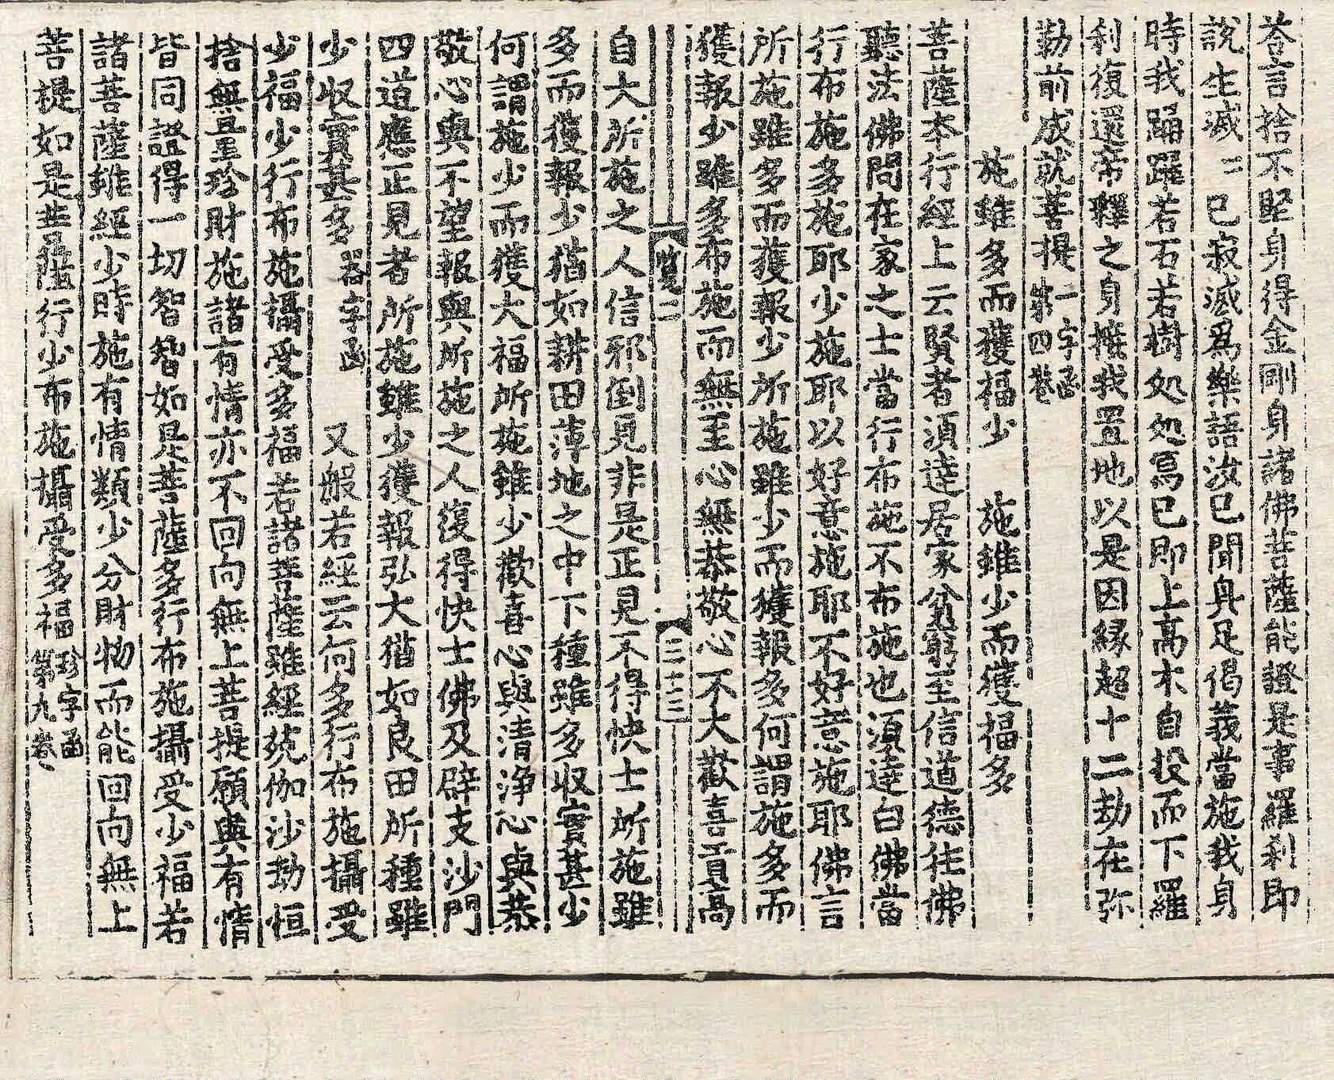 荅言捨不堅身得金剛身諸佛菩薩能證是事羅刹即
説生滅〻已寂滅爲樂語汝已聞具足偈義當施我身
時我踊躍若石若樹処処寫已即上高木自投而下羅
刹復還帝釋之身接我置地以是因縁超十二劫在弥
勒前成就菩提一字函第四卷
施雖多而獲福少　施雖少而獲福多
菩薩本行經上云賢者須達居家貧窮至信道德往佛
聽法佛問在家之士當行布施不布施也須達白佛當
行布施多施耶少施耶以好意施耶不好意施耶佛言
所施雖多而獲報少所施雖少而獲報多何謂施多而
獲報少雖多布施而無至心無恭敬心不大歡喜貢高
覽二　三十三
自大所施之人信邪倒見非是正見不得快士所施雖
多而獲報少猶如耕田薄地之中下種雖多收實甚少
何謂施少而獲大福所施雖少歡喜心與清淨心與恭
敬心與不望報與所施之人復得快士佛及辟支沙門
四道應正見者所施雖少獲報弘大猶如良田所種雖
少收實甚多器字函　又般若經云何多行布施攝受
少福少行布施攝受多福若諸菩薩雖經殑伽沙劫恒
捨無量珍財施諸有情亦不回向無上菩提願與有情
皆同證得一切智智如是菩薩多行布施攝受少福若
諸菩薩雖經少時施有情類少分財物而能回向無上
菩提如是菩薩行少布施攝受多福珍字函第九卷